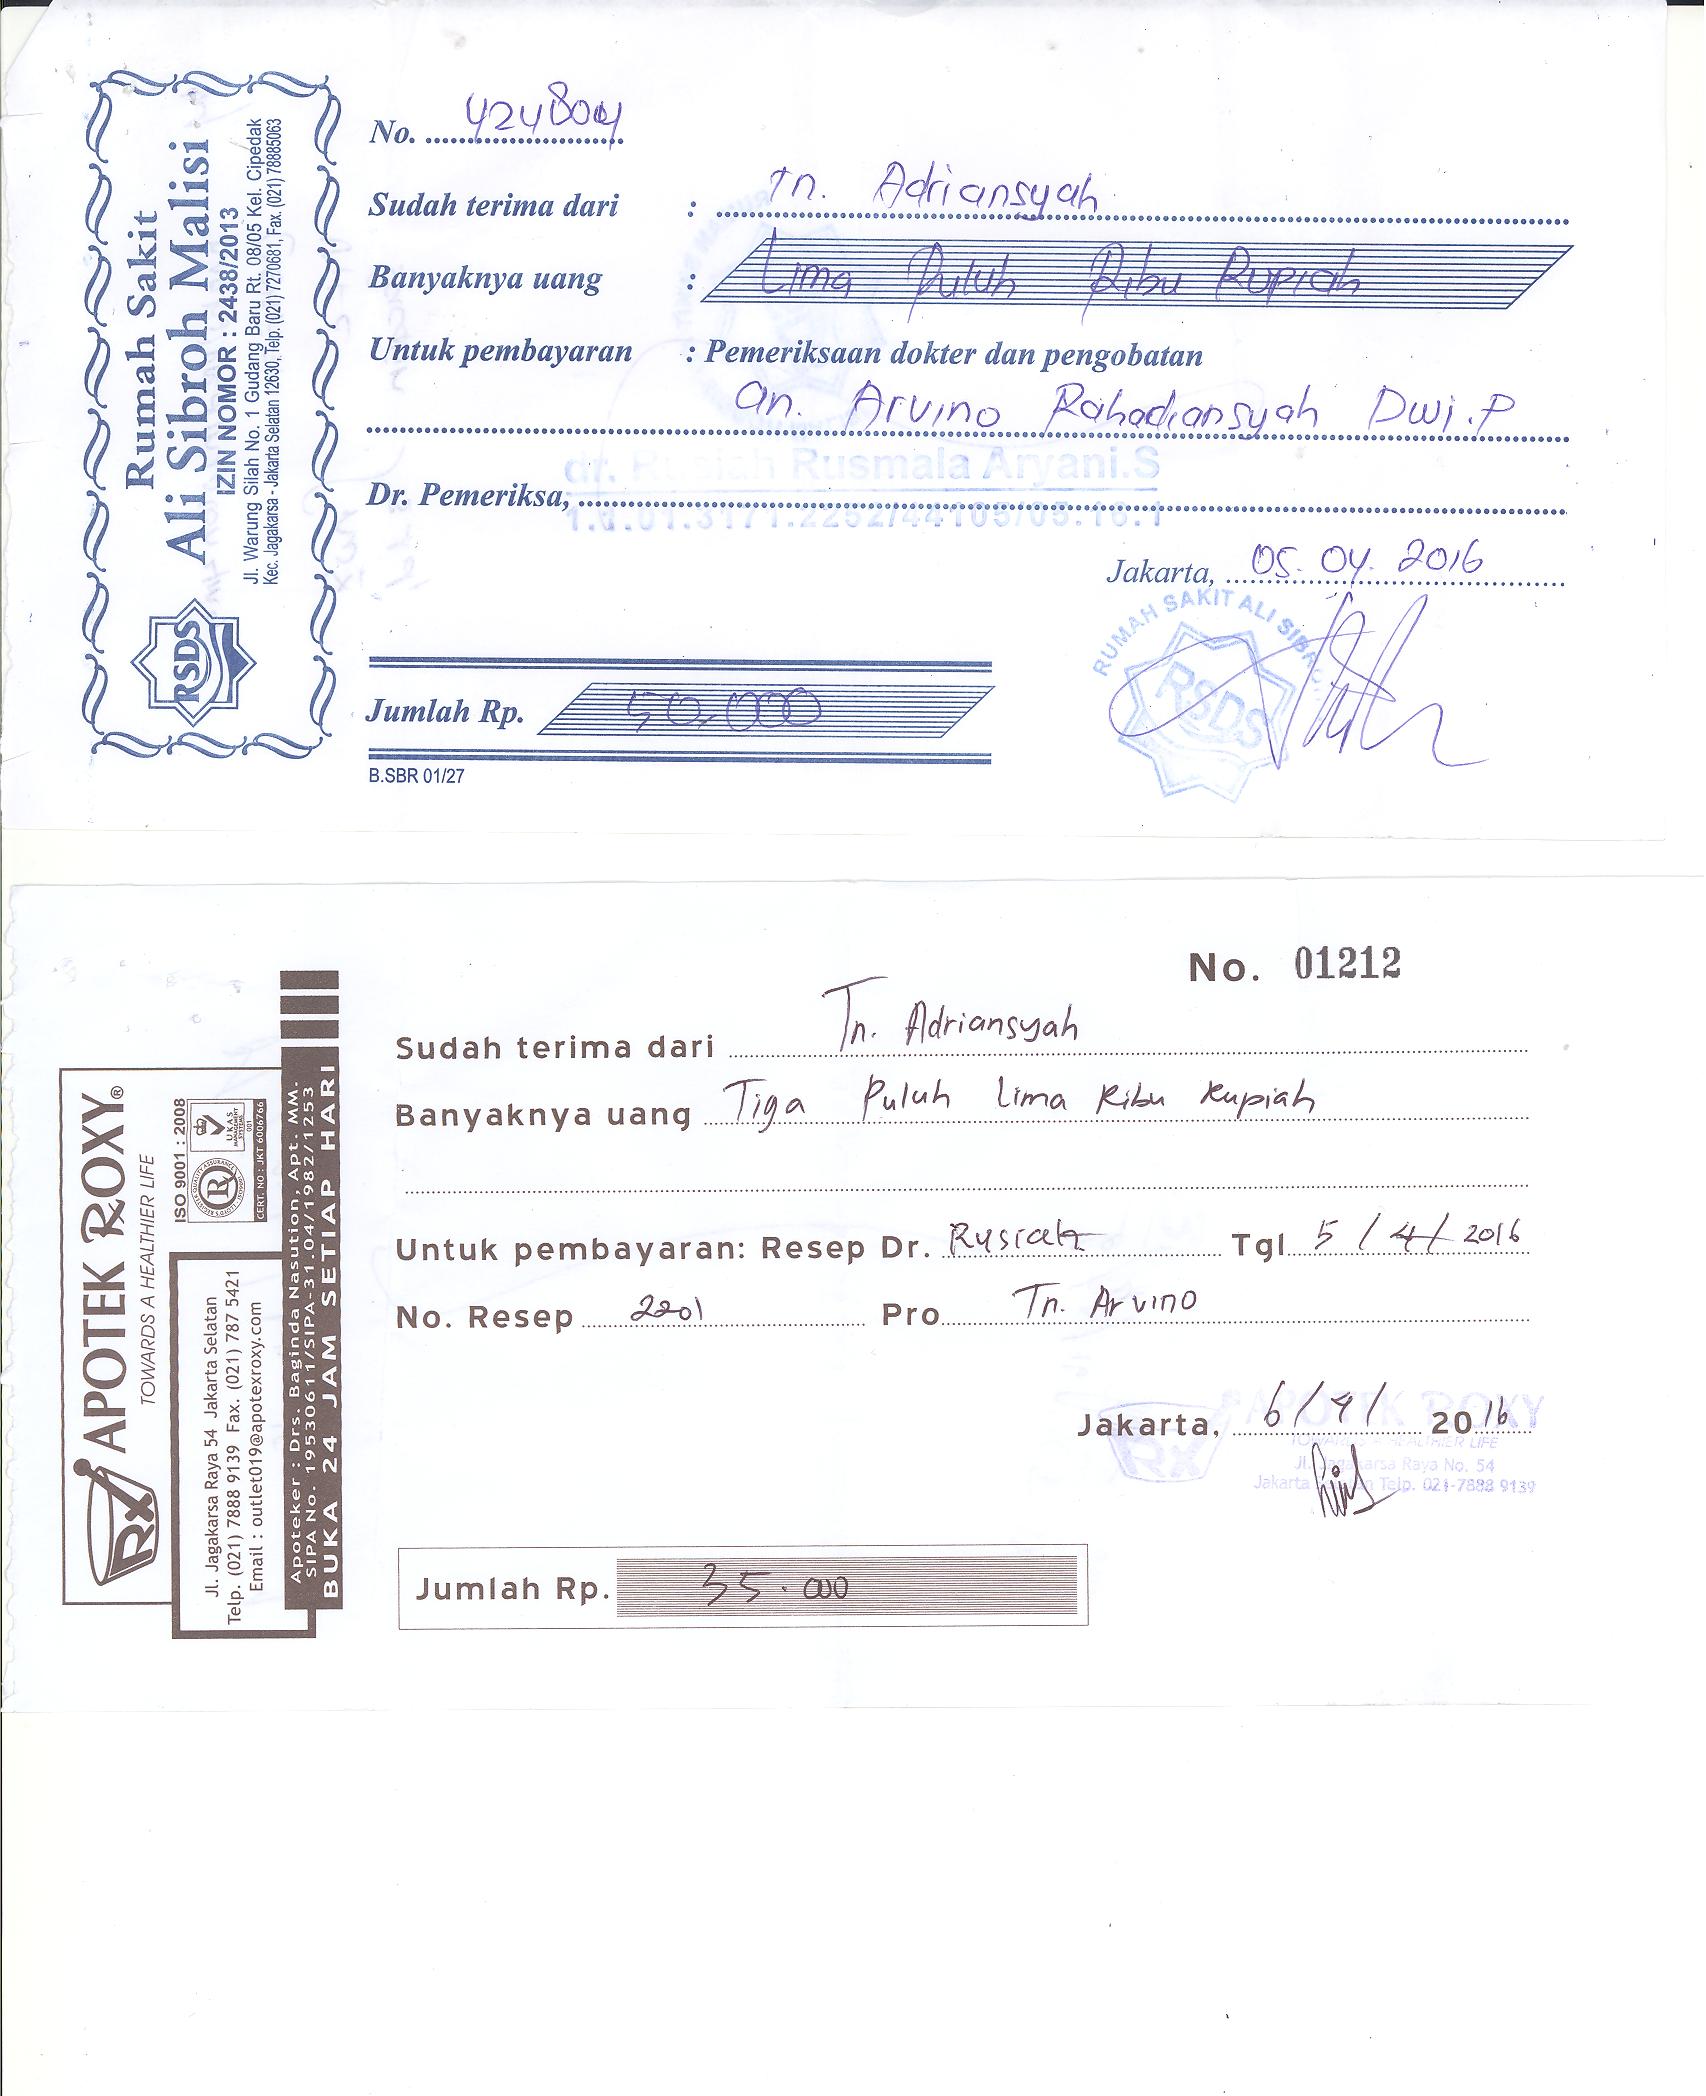 Rumah Sakit
Ali Sibroh Malisi
IZIN NOMOR : 2438/2013
Jl. Warung Silah No. 1 Gudang Baru Rt. 08/05 Kel. Cipedak
Kec. Jagakarsa - Jakarta Selatan 12630, Telp. (021) 7270681, Fax. (021) 78885063
RSDS
No. 424800
Sudah terima dari : Tn. Adriansyah
Banyaknya uang : Lima Puluh Ribu Rupiah
Untuk pembayaran : Pemeriksaan dokter dan pengobatan
an. Arvino Rahadiansyah Dwi.P
dr. Rusmala Aryani.S
Dr. Pemeriksa,
1.2.01.3171.2252/44105/05.16.1
Jakarta, 05.04.2016
RUMAH SAKIT ALI
RSDS
Jumlah Rp. 50.000
B.SBR 01/27
APOTEK ROXY®
TOWARDS A HEALTHIER LIFE
ISO 9001 : 2008
UKAS
MANAGEMENT
SYSTEMS
001
CERT. NO : JKT 6006766
Jl. Jagakarsa Raya 54 Jakarta Selatan
Telp. (021) 7888 9139 Fax. (021) 787 5421
Email : outlet019@apotexroxy.com
Apoteker : Drs. Baginda Nasution, Apt. MM.
SIPA No. 19530611/SIPA-31.04/1982/1253
BUKA 24 JAM SETIAP HARI
Rx
No. 01212
Sudah terima dari Tn. Adriansyah
Banyaknya uang Tiga Puluh Lima Ribu Rupiah
Untuk pembayaran: Resep Dr. Rusiah Tgl 5/4/2016
No. Resep 2201 Pro Tn. Arvino
Jakarta, 6/4/ 2016
APOTEK ROXY
TOWARDS A HEALTHIER LIFE
Jl. Jagakarsa Raya No. 54
Jakarta Telp. 021-7888 9139
Rx
Jumlah Rp. 35.000